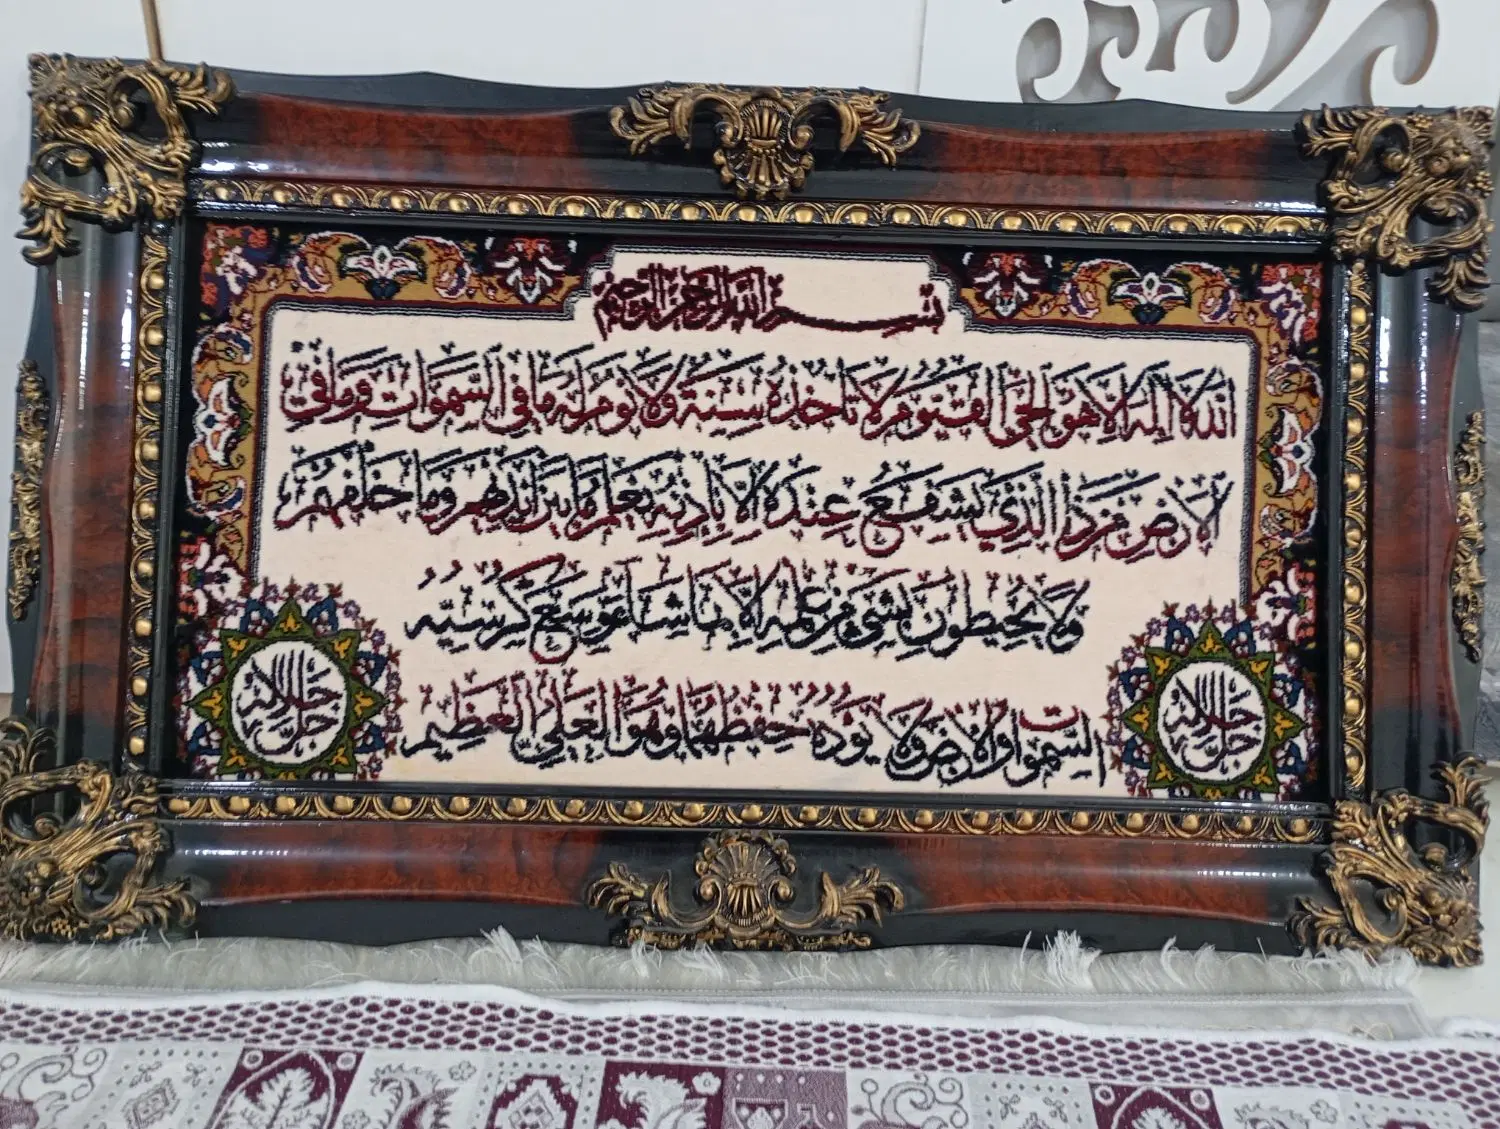 بسم الله الرحمن الرحيم
الله لا اله الا هو الحي القيوم لا تأخذه سنة ولا نوم له ما في السموات وما في
الارض من ذا الذي يشفع عنده الا باذنه يعلم ما بين ايديهم وما خلفهم
ولا يحيطون بشئ من علمه الا بما شاء وسع كرسيه
السموات والارض ولا يؤده حفظهما وهو العلي العظيم
جل جلاله
جل جلاله